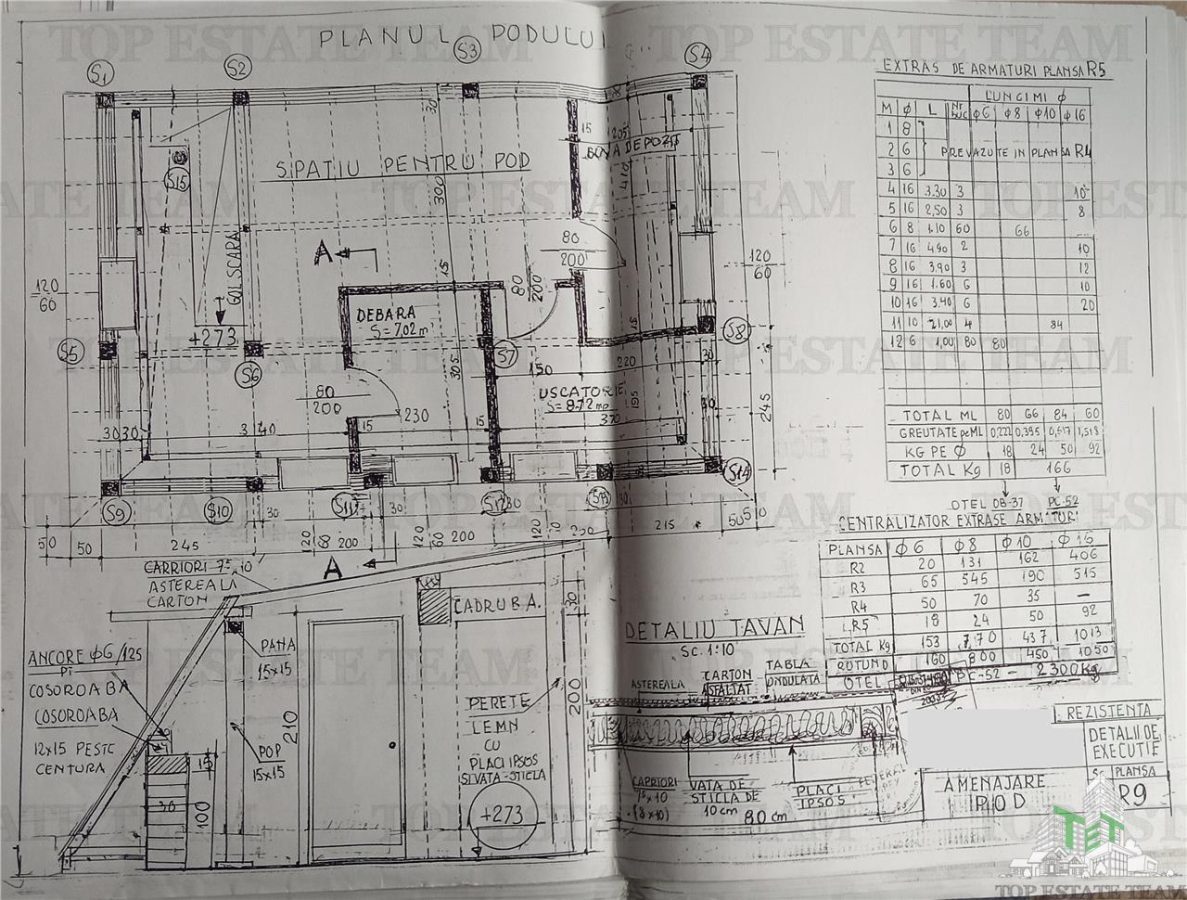 PLANUL PODULUI
S1
S2
S3
S4
SPATIU PENTRU POD
S15
GOL SCARA
+273
DEBARA
S=7.02 m²
80
200
80
200
80
200
A
S5
S6
S7
S8
120
60
120
60
USCATORIE
S=8.72 mp
300
15
305
410
15
150
220
30
195
370
245
230
30 30
3 40
15
15
S9
S10
S11
S12
S13
S14
50
50
245
30
120
60
200
30
120
60
200
120
215
50
50
A
CAPRIORI 7.5×10
ASTEREALA
CARTON
CADRU B.A.
ANCORE Φ6/125
PT
COSOROABA
COSOROABA
12x15 PESTE
CENTURA
PANA
15x15
POP
15x15
210
200
30
15
30
100
PERETE
LEMN
CU
PLACI IPSOS
SI VATA STICLA
+273
DETALIU TAVAN
SC. 1:10
ASTEREALA
CARTON
ASFALTAT
TABLA
ONDULATA
CAPRIORI
7.5x10
(8x10)
VATA DE
STICLA DE
10 cm
PLACI
IPSOS
80 cm
EXTRAS DE ARMATURI PLANSA R5
LUNGIMI Φ
M Φ L NR BUC Φ6 Φ8 Φ10 Φ16
1 8
2 6 PREVAZUTE IN PLANSA R4
3 6
4 16 3.30 3 10
5 16 2,50 3 8
6 8 1.10 60 66
7 16 4.90 2 10
8 16 3.90 3 12
9 16 1.60 6 10
10 16 3.40 6 20
11 10 21,00 4 84
12 6 1,00 80 80
TOTAL ML 80 66 84 60
GREUTATE pe ML 0,222 0,395 0,617 1,518
KG PE Φ 18 24 50 92
TOTAL Kg 18 166
OTEL OB-37 PC-52
CENTRALIZATOR EXTRASE ARMATURI
PLANSA Φ6 Φ8 Φ10 Φ16
R2 20 131 162 406
R3 65 545 190 515
R4 50 70 35 —
R5 18 24 50 92
TOTAL Kg 153 770 437 1013
ROTUND 160 800 450 1050
OTEL PC-52 - 2300 Kg
REZISTENTA
DETALII DE
EXECUTIE
AMENAJARE
POD
SC PLANSA
R9
TET
TOP ESTATE TEAM